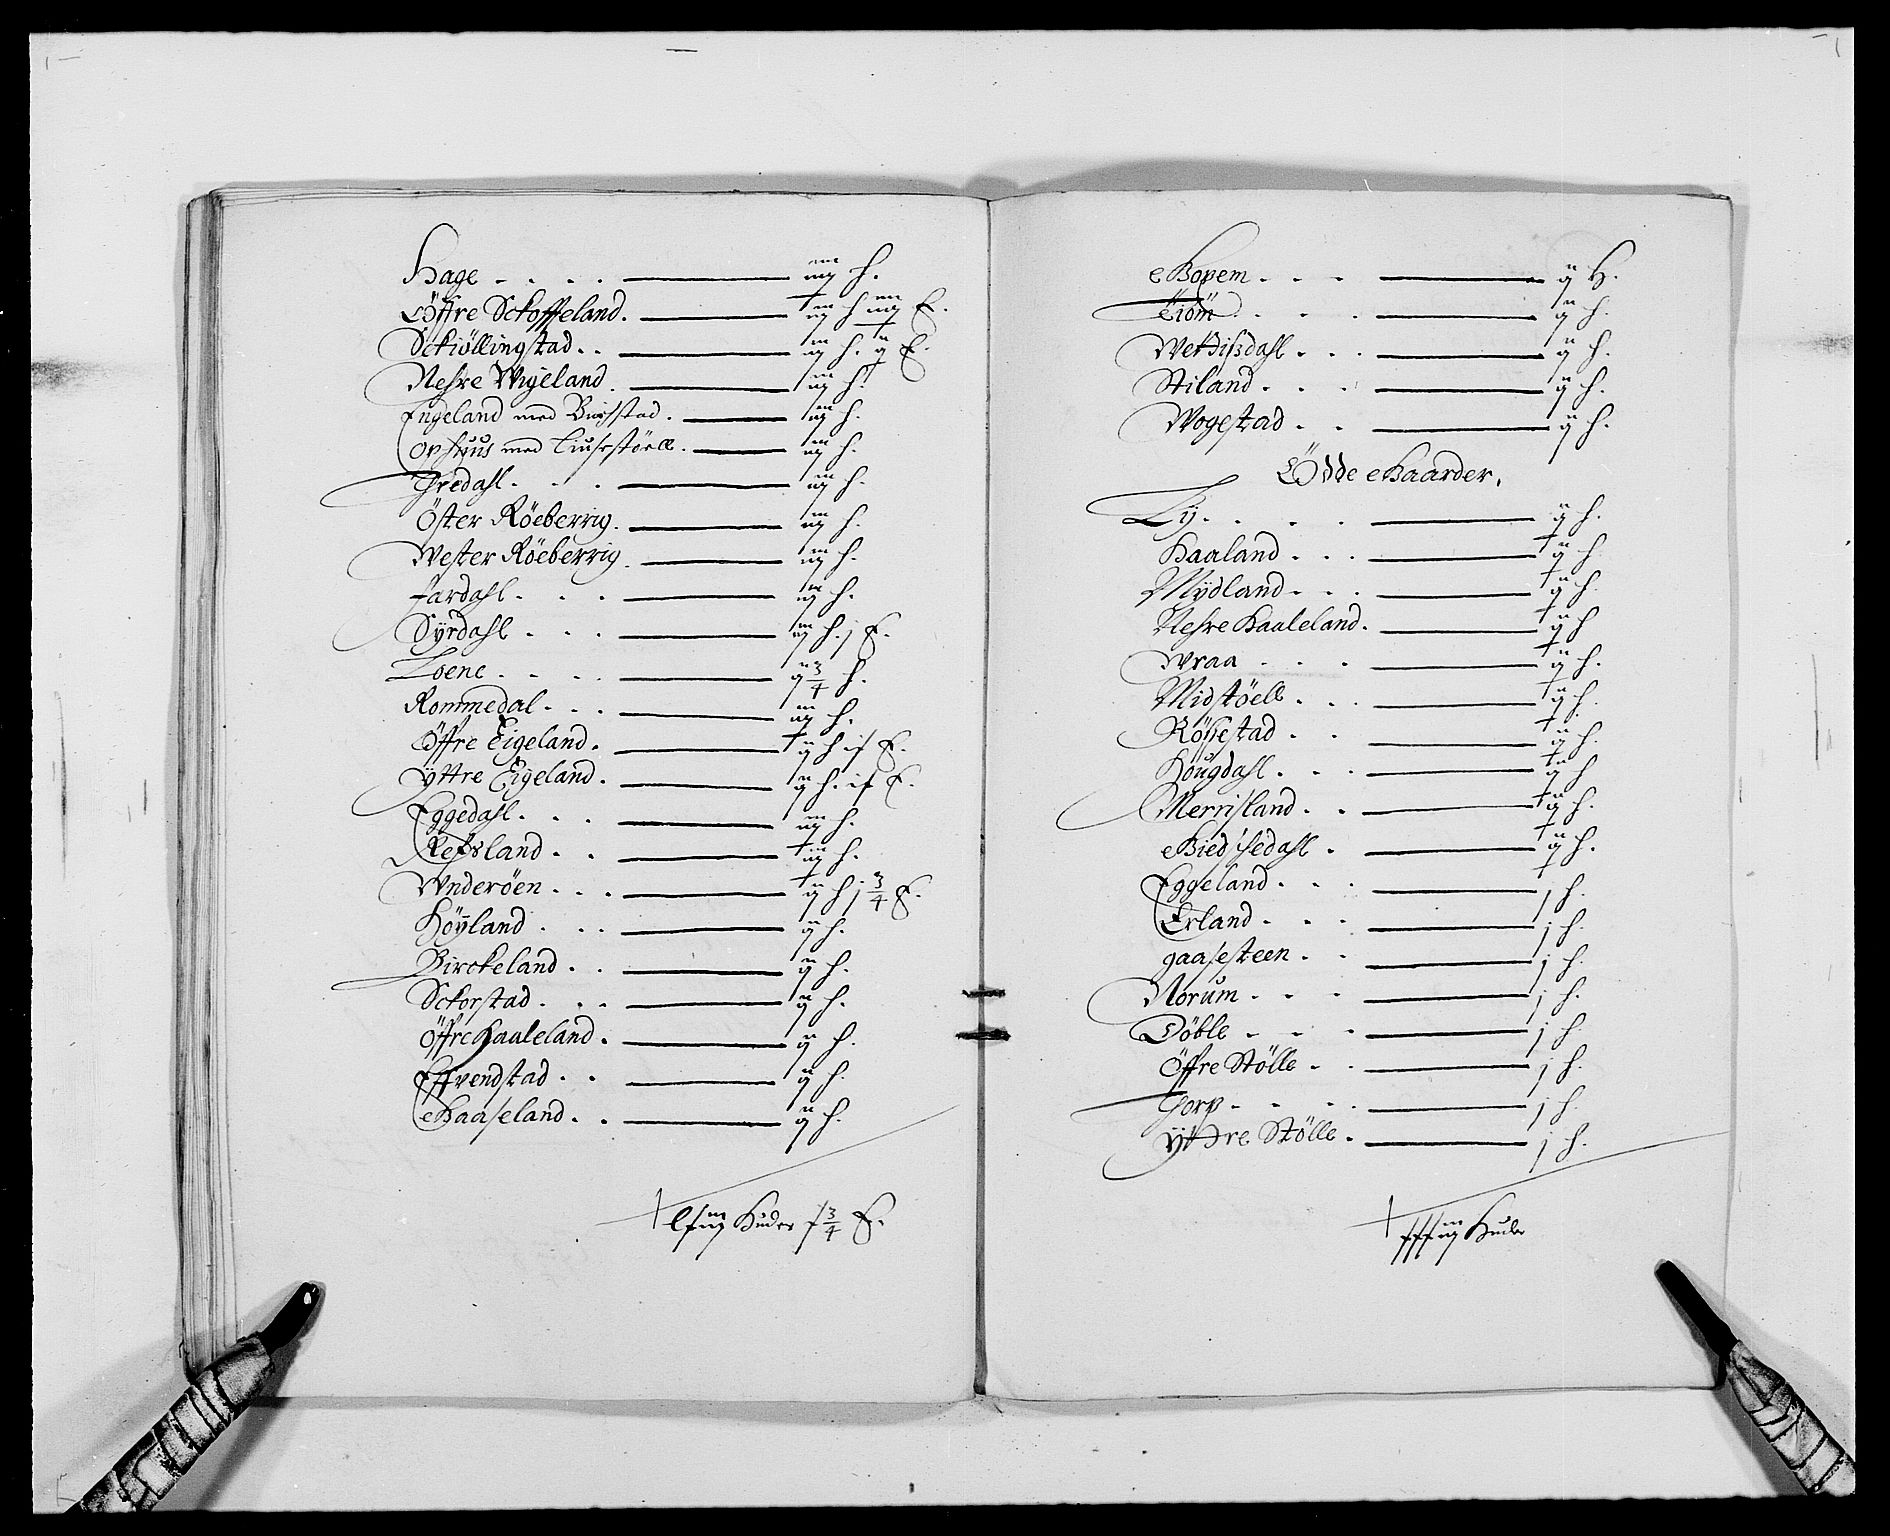 Hage - - - - iij h.
Öffre Sckoffeland. iij h iiij E.
Sckiöllingstad. . iij h. ij E.
Nehre Wigeland. iij h.
Engeland med Buchstad. iij h.
Ophuus med Liusestöell. iij h.
Thredahl. - - iij h.
Öster Röeberrig. iij h.
Wester Röeberrig. iij h.
Jardahl. - - iij h.
Syrdahl - - - iij h. j E.
Loene - - - - ij 3/4 h.
Rommedal - - - iij h.
Öffre Eigeland. ij h if E.
Yttre Eigeland. ij h. if E.
Eggedahl. - - iij h.
Refsland - - iij h.
Wnderöen - - - ij h j 3/4 E.
Höyland - - - ij h.
Birckeland - - ij h.
Sckorstad - - - ij h.
Öffre Haaleland. ij h.
Effvendstad - - ij h.
Haaseland - - ij h.
Huder 3/4 E.
Bopem - - - ij H.
Tiöm - - - ij h.
Wethisdahl - - - ij h.
Stiland - - - ij h.
Wogestad - - ij h.
Ödde Gaarder.
Lij - - - - ij h.
Haaland - - - ij h.
Mydland - - - ij h.
Nehre Haaleland. ij h
Wraa - - - ij h.
Midstöell - - - ij h.
Röjsestad - - ij h.
Hougdahl - - - ij h
Merrisland - - ij h.
Biedisedahl - ij h.
Eggeland - - - j h.
Erland - - - j h.
gaasesteen - - j h.
Norum - - - j h.
Döble - - - j h.
Öffre Stölle - - j h.
Torp - - - j h.
Yttre Stölle - j h.
Huder